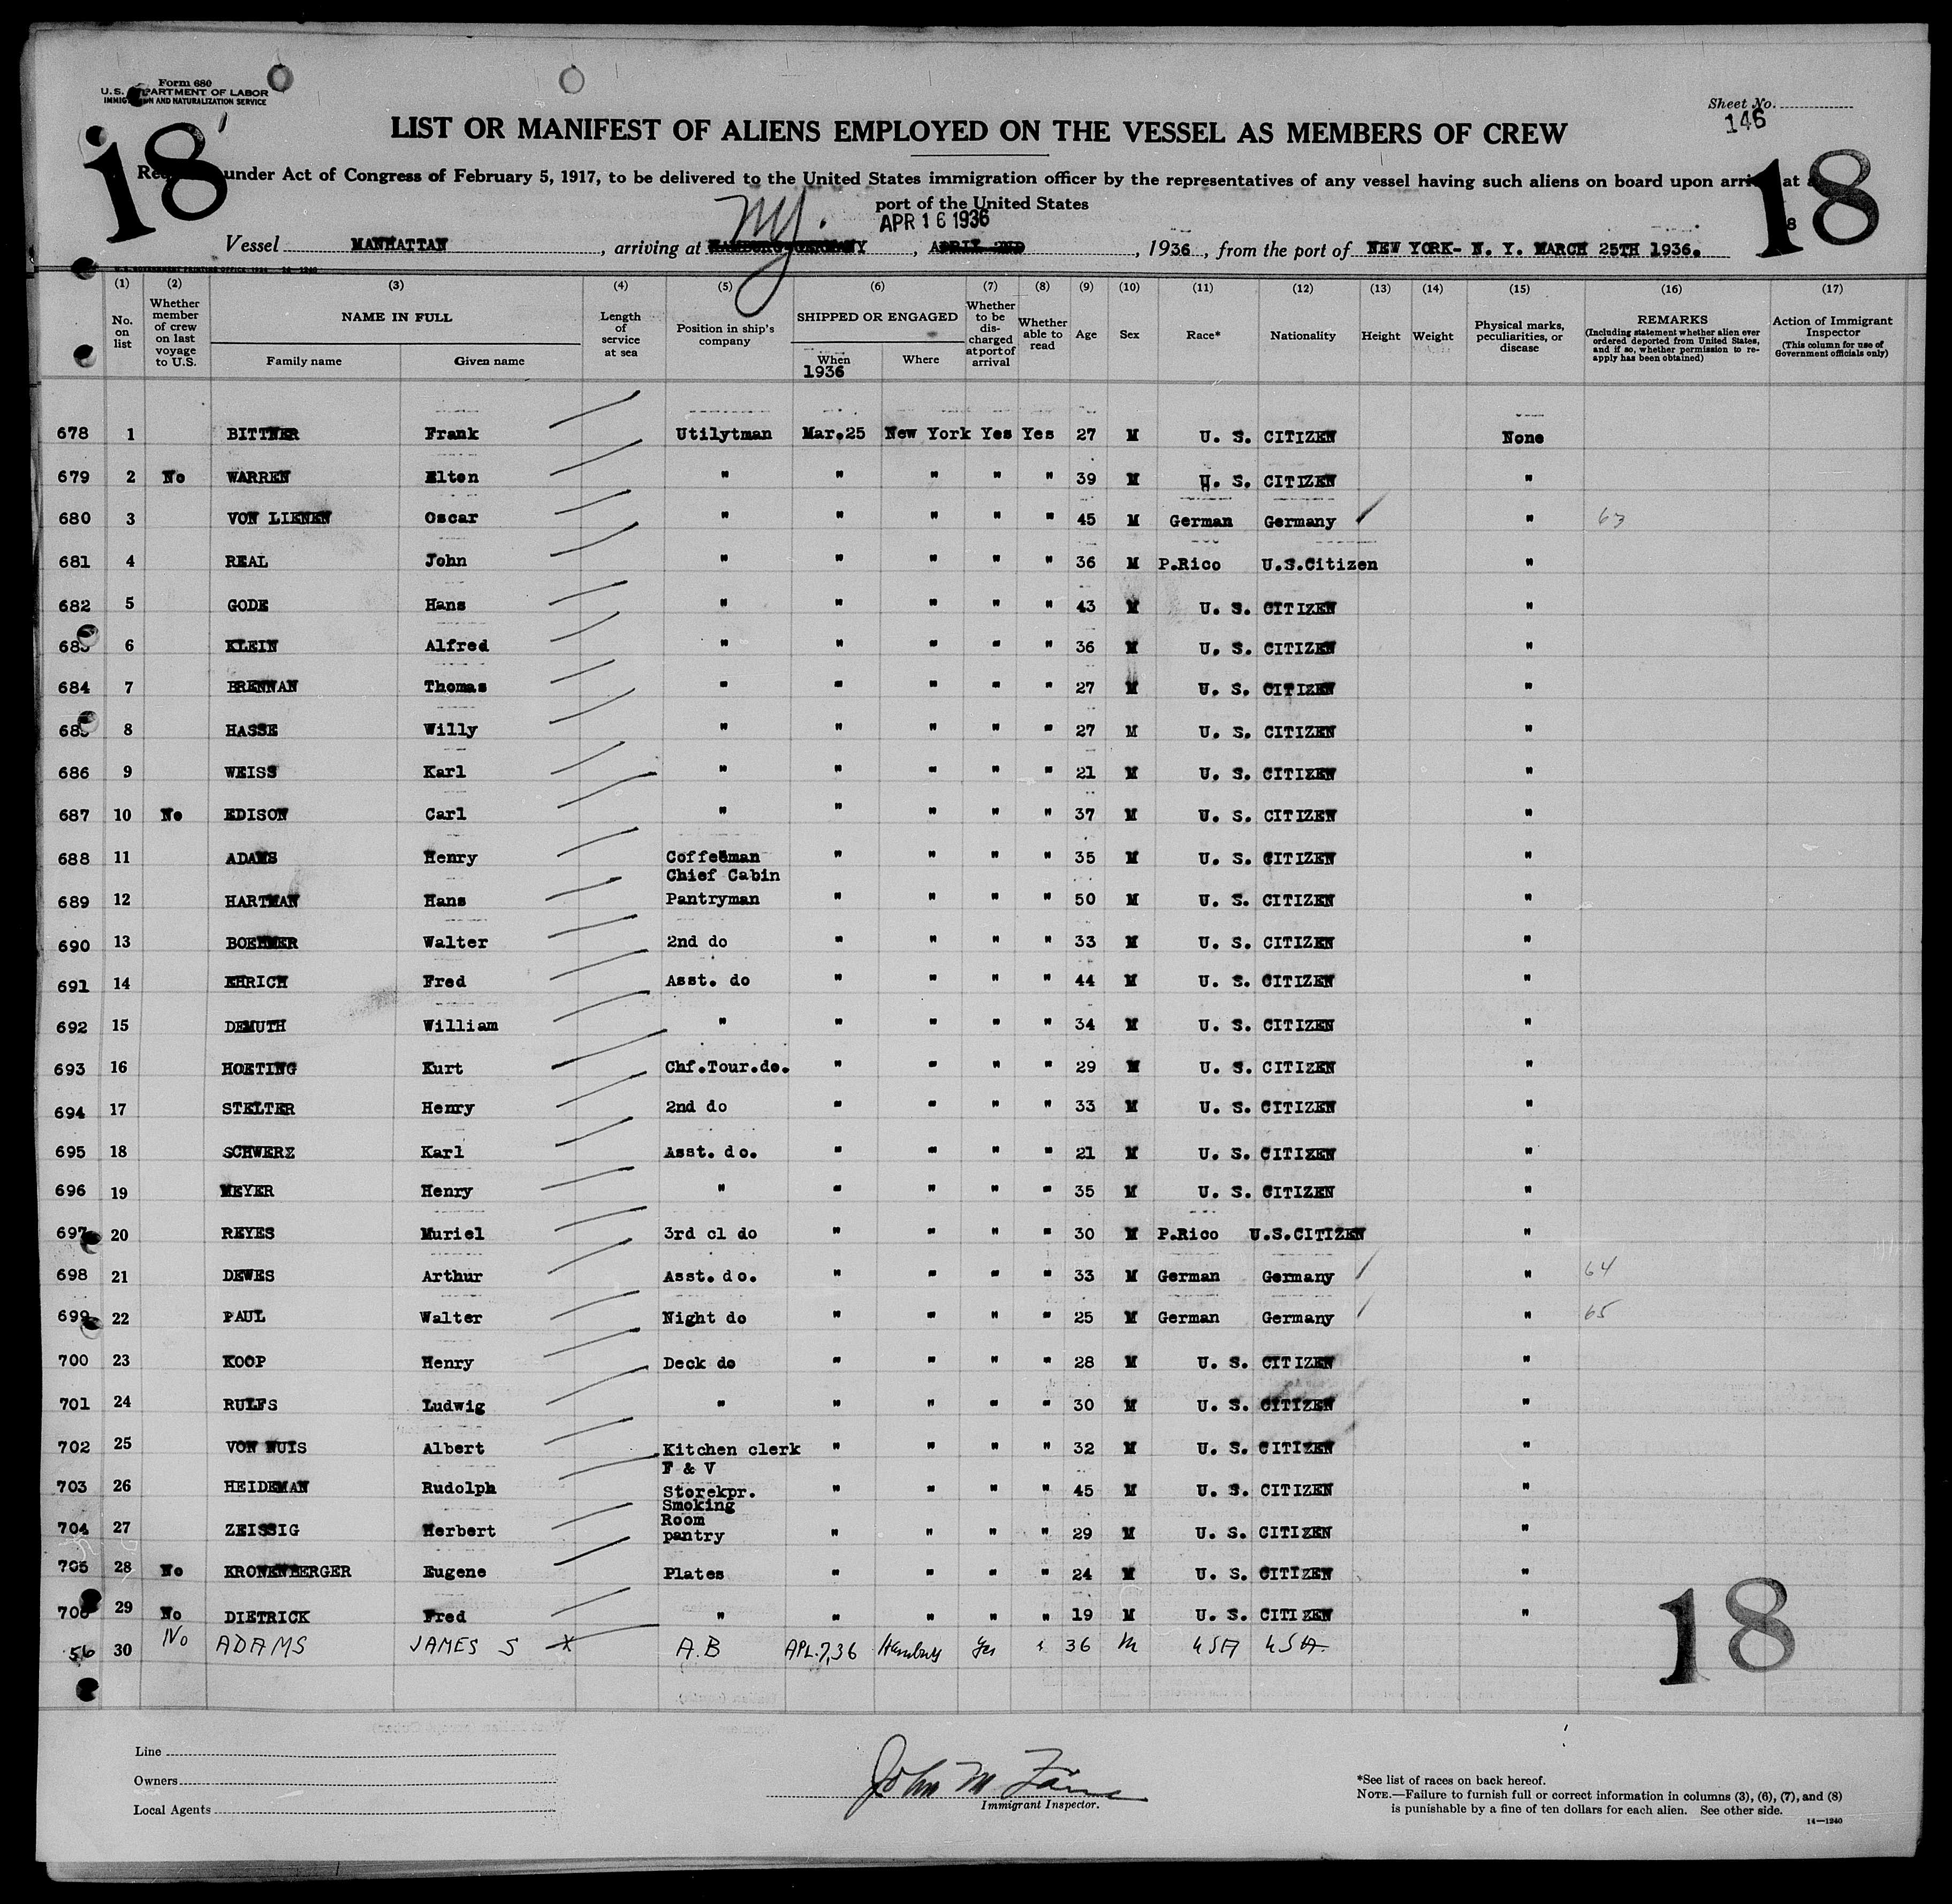 Form 680
U. S. DEPARTMENT OF LABOR
IMMIGRATION AND NATURALIZATION SERVICE
Sheet No.
146
18
18
LIST OR MANIFEST OF ALIENS EMPLOYED ON THE VESSEL AS MEMBERS OF CREW
under Act of Congress of February 5, 1917, to be delivered to the United States immigration officer by the representatives of any vessel having such aliens on board upon arrival at a
port of the United States
NY. APR 16 1936
Vessel MANHATTAN, arriving at HAMBURG-GERMANY, APRIL 2ND, 1936, from the port of NEW YORK- N. Y. MARCH 25TH 1936.
(1) (2) (3) (4) (5) (6) (7) (8) (9) (10) (11) (12) (13) (14) (15) (16) (17)
No. on list
Whether member of crew on last voyage to U.S.
NAME IN FULL
Family name
Given name
Length of service at sea
Position in ship's company
SHIPPED OR ENGAGED
When
1936
Where
Whether to be discharged at port of arrival
Whether able to read
Age
Sex
Race*
Nationality
Height
Weight
Physical marks, peculiarities, or disease
REMARKS
(Including statement whether alien ever ordered deported from United States, and if so, whether permission to re-apply has been obtained)
Action of Immigrant Inspector
(This column for use of Government officials only)
678 1 BITTNER Frank Utilytman Mar.25 New York Yes Yes 27 M U. S. CITIZEN None
679 2 No WARREN Elton " " " " " 39 M U. S. CITIZEN "
680 3 VON LIENEN Oscar " " " " " 45 M German Germany " 63
681 4 REAL John " " " " " 36 M P.Rico U.S.Citizen "
682 5 GODE Hans " " " " " 43 M U. S. CITIZEN "
683 6 KLEIN Alfred " " " " " 36 M U. S. CITIZEN "
684 7 BRENNAN Thomas " " " " " 27 M U. S. CITIZEN "
685 8 HASSE Willy " " " " " 27 M U. S. CITIZEN "
686 9 WEISS Karl " " " " " 21 M U. S. CITIZEN "
687 10 No EDISON Carl " " " " " 37 M U. S. CITIZEN "
688 11 ADAMS Henry Coffeeman " " " " 35 M U. S. CITIZEN "
Chief Cabin
689 12 HARTMAN Hans Pantryman " " " " 50 M U. S. CITIZEN "
690 13 BOEHMER Walter 2nd do " " " " 33 M U. S. CITIZEN "
691 14 EHRICH Fred Asst. do " " " " 44 M U. S. CITIZEN "
692 15 DEMUTH William " " " " " 34 M U. S. CITIZEN "
693 16 HOETING Kurt Chf.Tour.do. " " " " 29 M U. S. CITIZEN "
694 17 STELTER Henry 2nd do " " " " 33 M U. S. CITIZEN "
695 18 SCHWERZ Karl Asst. do. " " " " 21 M U. S. CITIZEN "
696 19 MEYER Henry " " " " " 35 M U. S. CITIZEN "
697 20 REYES Muriel 3rd cl do " " " " 30 M P.Rico U.S.CITIZEN "
698 21 DEWES Arthur Asst. do. " " " " 33 M German Germany " 64
699 22 PAUL Walter Night do " " " " 25 M German Germany " 65
700 23 KOOP Henry Deck do " " " " 28 M U. S. CITIZEN "
701 24 RULFS Ludwig " " " " " 30 M U. S. CITIZEN "
702 25 VON NUIS Albert Kitchen clerk " " " " 32 M U. S. CITIZEN "
F & V
703 26 HEIDEMAN Rudolph Storekpr. " " " " 45 M U. S. CITIZEN "
Smoking
Room
704 27 ZEISSIG Herbert pantry " " " " 29 M U. S. CITIZEN "
705 28 No KRONENBERGER Eugene Plates " " " " 24 M U. S. CITIZEN "
706 29 No DIETRICK Fred " " " " " 19 M U. S. CITIZEN "
56 30 No ADAMS JAMES S X A.B APL.7,36 Hamburg Yes " 36 M USA USA.
18
Line
Owners
Local Agents
John M
Immigrant Inspector.
*See list of races on back hereof.
NOTE.—Failure to furnish full or correct information in columns (3), (6), (7), and (8)
is punishable by a fine of ten dollars for each alien. See other side.
14—1240